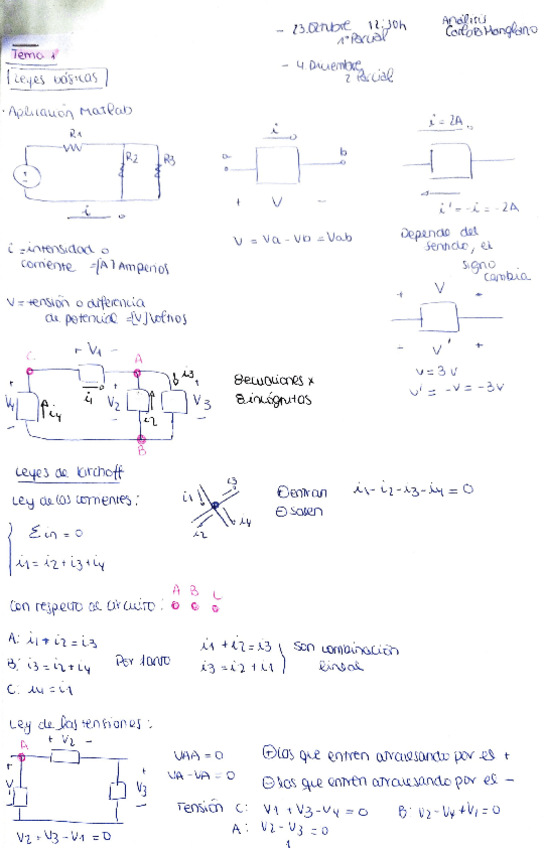 - 23.Octubre 12:30h
1º Parcial
Análisis
- 4.Diciembre
2 Parcial
Tema 1
Leyes básicas
· Aplicación Matlab
R1
R2
R3
i
i
a
b
+ V -
V = Va - Vb = Vab
i = 2A
i' = -i = -2A
Depende del
sentido, el
signo
cambia
i = intensidad o
corriente = [A] Amperios
V = tensión o diferencia
de potencial = [V] Voltios
+ V -
- V' +
V = 3V
V' = -V = -3V
+ V1 -
C
A
B
V4
i4
i1
V2
i2
i3
V3
8 ecuaciones x
8 incógnitas
Leyes de Kirchoff
Ley de las corrientes:
Σ in = 0
i1 = i2 + i3 + i4
i1
i3
i2
i4
⊕ entran
⊖ salen
i1 - i2 - i3 - i4 = 0
Con respecto al circuito: A B C
A: i1 + i2 = i3
B: i3 = i2 + i4
C: i4 = i1
Por tanto
i1 + i2 = i3
i3 = i2 + i1
son combinación
lineal
Ley de las tensiones:
A
+ V2 -
V1
V3
V2 + V3 - V1 = 0
VAA = 0
VA - VA = 0
⊕ los que entren atravesando por el +
⊖ los que entren atravesando por el -
Tensión C: V1 + V3 - V4 = 0 B: V2 - V4 + V1 = 0
A: V2 - V3 = 0
1